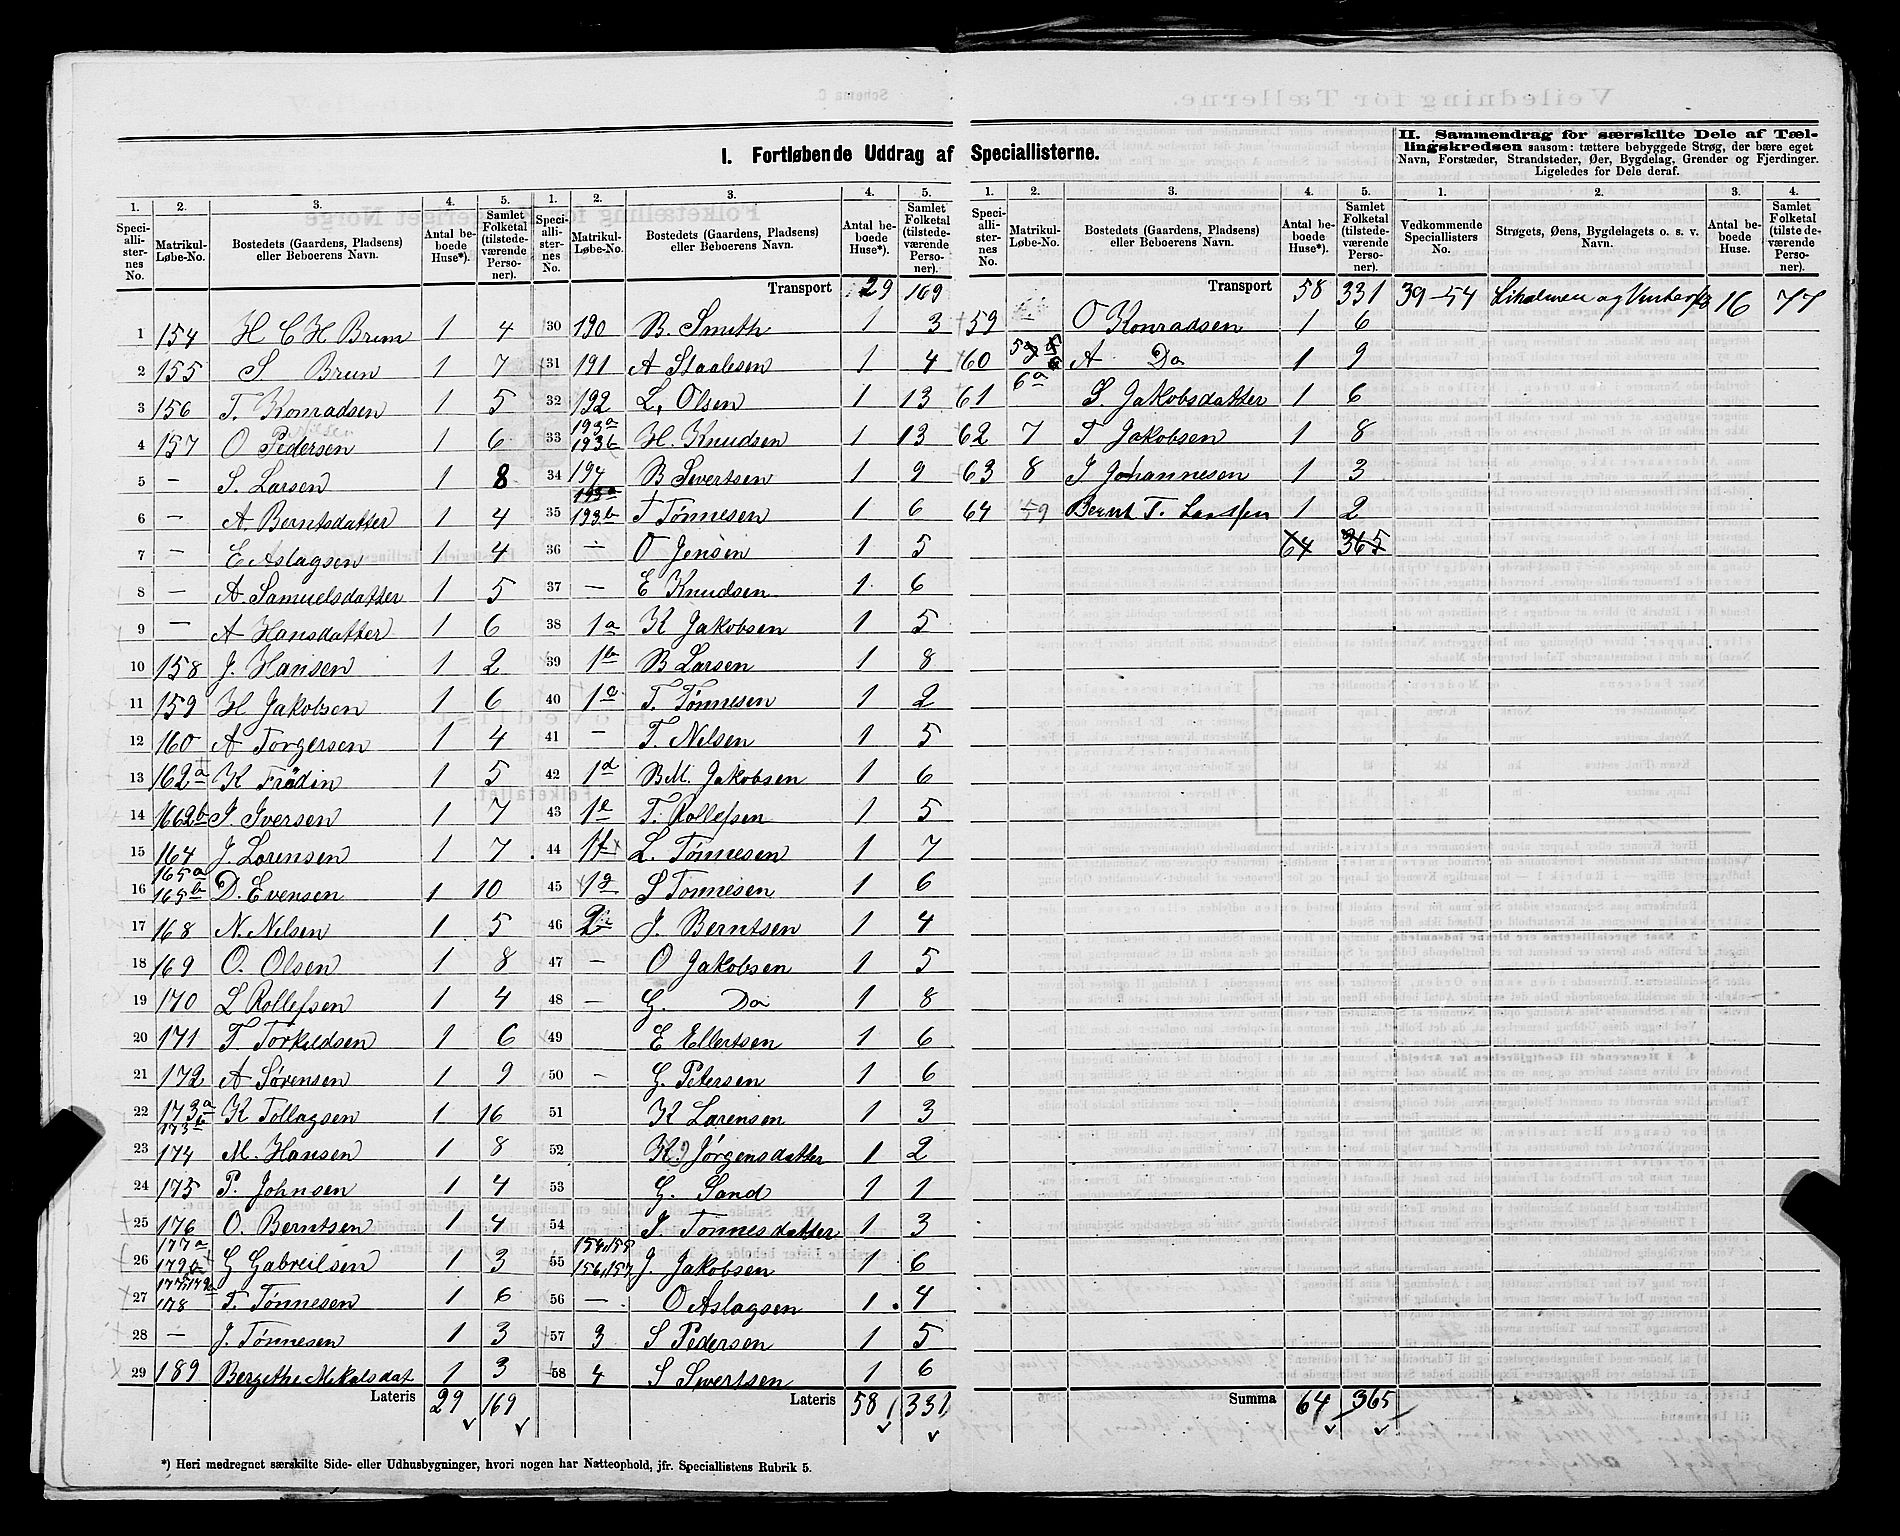 I. Fortløbende Uddrag af Speciallisterne.
II. Sammendrag for særskilte Dele af Tællingskredsen saasom: tættere bebyggede Strøg, der bære eget
Navn, Forstæder, Strandsteder, Øer, Bygdelag, Grender og Fjerdinger.
Ligeledes for Dele deraf.
1. 2. 3. 4. 5.
Speciallisternes No. Matrikul-Løbe-No. Bostedets (Gaardens, Pladsens) eller Beboerens Navn. Antal beboede Huse*). Samlet Folketal (tilstedeværende Personer).
1 154 H C H Brun 1 4
2 155 S Brun 1 7
3 156 T. Konradsen 1 5
4 157 O Pedersen 1 6
5 - S. Larsen 1 8
6 - A. Berntsdatter 1 4
7 - E Aslagsen 1 4
8 - A. Samuelsdatter 1 5
9 - A Hansdatter 1 6
10 158 J. Hansen 1 2
11 159 H Jakobsen 1 6
12 160 A Torgersen 1 4
13 162a K Frødin 1 5
14 1662b J Iversen 1 7
15 164 J. Lorensen 1 7
16 165a 165b D. Evensen 1 10
17 168 N. Nilsen 1 5
18 169 O. Olsen 1 8
19 170 L Rollefsen 1 4
20 171 T Torkildsen 1 6
21 172 A Sørensen 1 9
22 173a 173b K Tollagsen 1 16
23 174 M. Hansen 1 8
24 175 P. Johnsen 1 4
25 176 O. Berntsen 1 4
26 177a 179a G Gabreilsen 1 3
27 178 T. Tønnesen 1 6
28 - J. Tønnesen 1 3
29 189 Bergethe Mikalsdat 1 3
Lateris 29 169
1. 2. 3. 4. 5.
Speciallisternes No. Matrikul-Løbe-No. Bostedets (Gaardens, Pladsens) eller Beboerens Navn. Antal beboede Huse*). Samlet Folketal (tilstedeværende Personer).
Transport 29 169
30 190 B. Smith 1 3
31 191 A Staalesen 1 4
32 192 L, Olsen 1 13
33 193a 193b H. Knudsen 1 13
34 194 B Sivertsen 1 9
35 193a 193b T Tønnesen 1 6
36 - O Jensen 1 5
37 - E Knudsen 1 6
38 1a K Jakobsen 1 5
39 1b B Larsen 1 8
40 1c T. Tønnesen 1 2
41 - T. Nilsen 1 5
42 1d B M. Jakobsen 1 6
43 1e T. Rollefsen 1 5
44 1f L. Tønnesen 1 7
45 1g S Tonnesen 1 6
46 2 J. Berntsen 1 4
47 - O Jakobsen 1 5
48 - G. Do 1 8
49 E Ellertsen 1 6
50 - G. Petersen 1 6
51 K Lorensen 1 3
52 K. Jørgensdatter 1 2
53 G. Sand 1 1
54 J. Tonnesdatter 1 3
55 154,155 156,157 J. Jakobsen 1 6
56 - O Aslagsen 1 4
57 3 S Pedersen 1 5
58 4 S Sivertsen 1 6
Lateris 58 331
1. 2. 3. 4. 5.
Speciallisternes No. Matrikul-Løbe-No. Bostedets (Gaardens, Pladsens) eller Beboerens Navn. Antal beboede Huse*). Samlet Folketal (tilstedeværende Personer).
Transport 58 331
59 O Konradsen 1 6
60 A Do 1 9
61 6a S. Jakobsdatter 1 6
62 7 T Jakobsen 1 8
63 8 J Johannesen 1 3
64 59 Bernt T. Larssen 1 2
64 365
Summa 64 365
1. 2. 3. 4.
Vedkommende Speciallisters No. Strøgets, Øens, Bygdelagets o. s. v. Navn. Antal beboede Huse. Samlet Folketal (tilstedeværende Personer).
39-54 og 16 77
*) Heri medregnet særskilte Side- eller Udhusbygninger, hvori nogen har Natteophold, jfr. Speciallistens Rubrik 5.